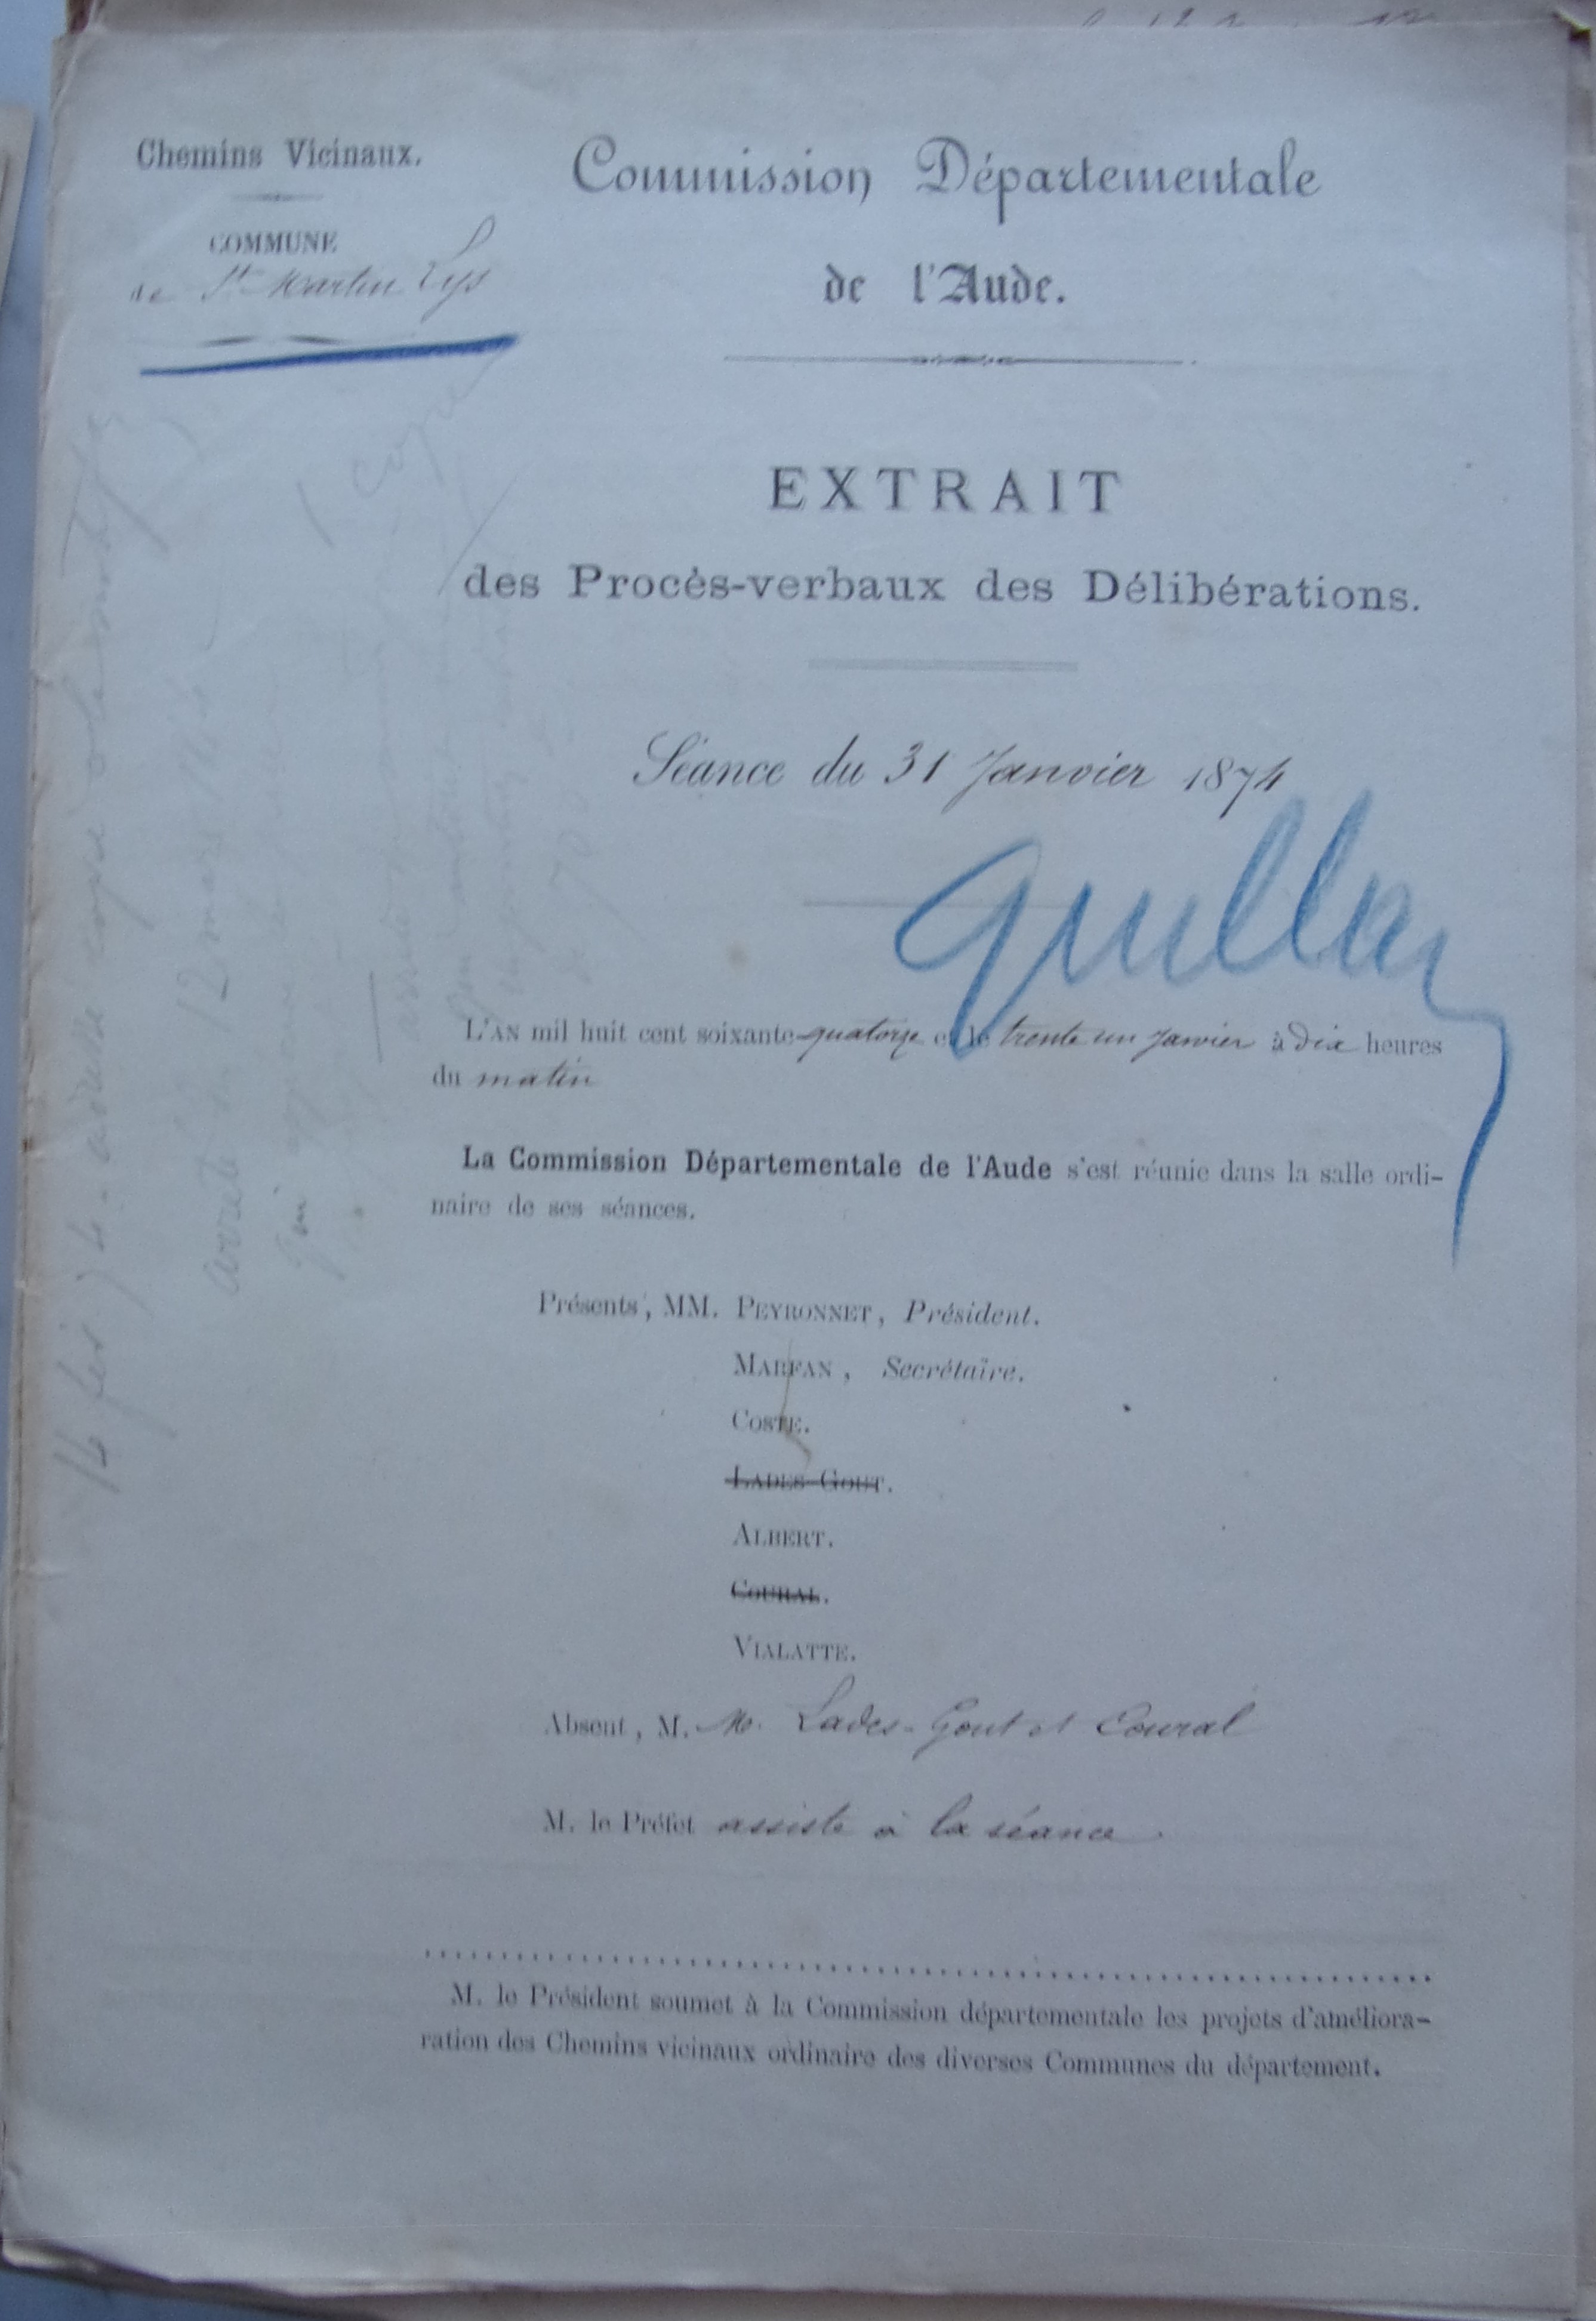 Chemins Vicinaux.
COMMUNE
de St Martin Lys
Commission Départementale
de l'Aude.
EXTRAIT
des Procès-verbaux des Délibérations.
Séance du 31 Janvier 1874
Quillan
L'AN mil huit cent soixante-quatorze et le trente un Janvier à dix heures
du matin
La Commission Départementale de l'Aude s'est réunie dans la salle ordi-
naire de ses séances.
Présents, MM. PEYRONNET, Président.
MARFAN, Secrétaire.
COSTE.
LADES-GOUT.
ALBERT.
COURAL.
VIALATTE.
Absent, M. M. Lades-Gout et Coural
M. le Préfet assiste à la séance.
M. le Président soumet à la Commission départementale les projets d'améliora-
ration des Chemins vicinaux ordinaire des diverses Communes du département.
copie
arrêté du 12 mars